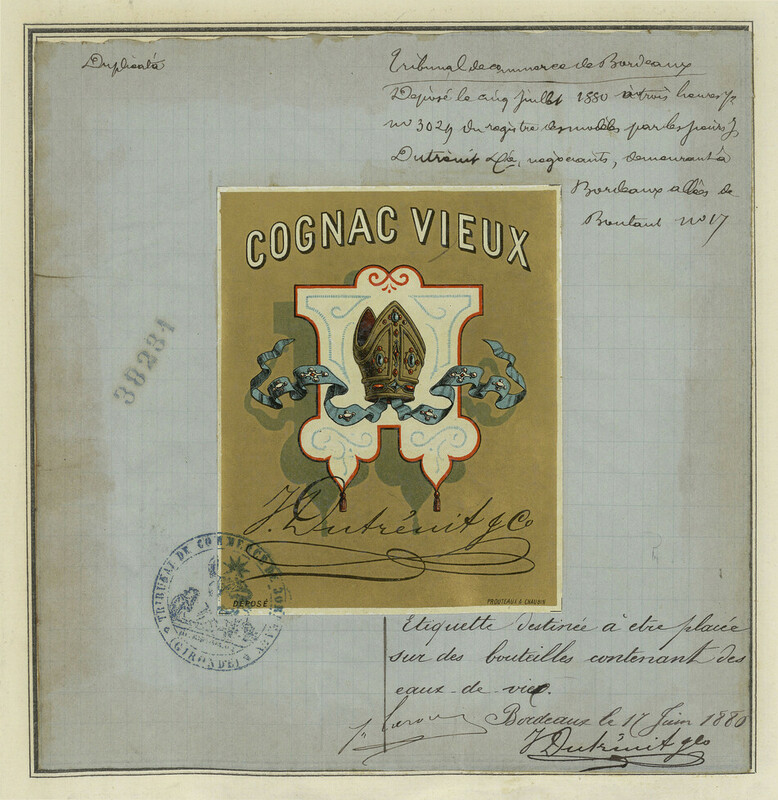 Duplicata
Tribunal de commerce de Bordeaux
Déposé le cinq juillet 1880 à trois heures
no 3029 du registre des modèles par les sieurs J
Dutrénit & Cie, négociants, demeurant à
Bordeaux allées de
Boutaut no 17
COGNAC VIEUX
38231
J. Dutrénit & Co
TRIBUNAL DE COMMERCE DE BORDEAUX
(GIRONDE)
DÉPOSÉ
PROUTEAUX & CHAUVIN
Etiquette destinée à etre placée
sur des bouteilles contenant des
eaux-de-vie.
Bordeaux le 17 Juin 1880
J Dutrénit & Co